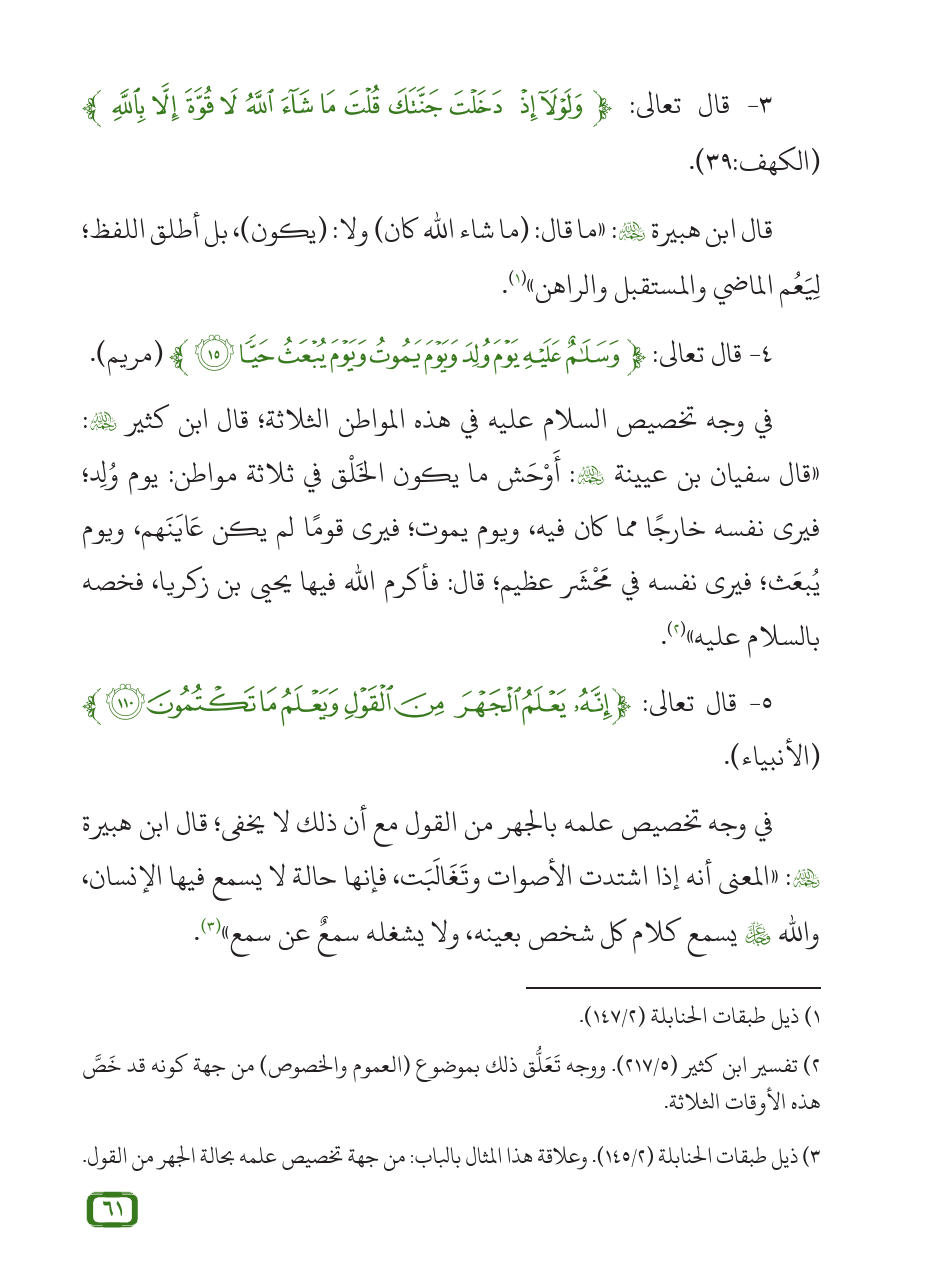 ٣- قال تعالى: ﴿ وَلَوْلَآ إِذْ دَخَلْتَ جَنَّتَكَ قُلْتَ مَا شَآءَ ٱللَّهُ لَا قُوَّةَ إِلَّا بِٱللَّهِ ﴾
(الكهف:٣٩).
قال ابن هبيرة رحمه الله: «ما قال: (ما شاء الله كان) ولا: (يكون)، بل أطلق اللفظ؛
لِيَعُم الماضي والمستقبل والراهن»(١).
٤- قال تعالى: ﴿ وَسَلَٰمٌ عَلَيْهِ يَوْمَ وُلِدَ وَيَوْمَ يَمُوتُ وَيَوْمَ يُبْعَثُ حَيًّا ١٥ ﴾ (مريم).
في وجه تخصيص السلام عليه في هذه المواطن الثلاثة؛ قال ابن كثير رحمه الله:
«قال سفيان بن عيينة رحمه الله: أَوْحَش ما يكون الخَلْق في ثلاثة مواطن: يوم وُلِد؛
فيرى نفسه خارجًا مما كان فيه، ويوم يموت؛ فيرى قومًا لم يكن عَايَنَهم، ويوم
يُبعَث؛ فيرى نفسه في مَحْشَر عظيم؛ قال: فأكرم الله فيها يحيى بن زكريا، فخصه
بالسلام عليه»(٢).
٥- قال تعالى: ﴿إِنَّهُۥ يَعْلَمُ ٱلْجَهْرَ مِنَ ٱلْقَوْلِ وَيَعْلَمُ مَا تَكْتُمُونَ ١١٠ ﴾
(الأنبياء).
في وجه تخصيص علمه بالجهر من القول مع أن ذلك لا يخفى؛ قال ابن هبيرة
رحمه الله: «المعنى أنه إذا اشتدت الأصوات وتَغَالَبَت، فإنها حالة لا يسمع فيها الإنسان،
والله ﷻ يسمع كلام كل شخص بعينه، ولا يشغله سمعٌ عن سمع»(٣).
١) ذيل طبقات الحنابلة (١٤٧/٢).
٢) تفسير ابن كثير (٢١٧/٥). ووجه تَعَلُّق ذلك بموضوع (العموم والخصوص) من جهة كونه قد خَصَّ
هذه الأوقات الثلاثة.
٣) ذيل طبقات الحنابلة (١٤٥/٢). وعلاقة هذا المثال بالباب: من جهة تخصيص علمه بحالة الجهر من القول.
٦١